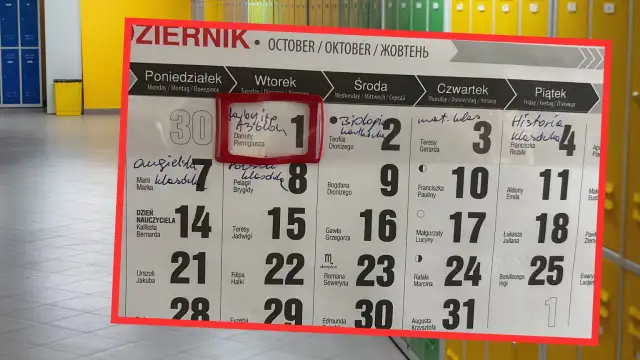 ŹDZIERNIK • OCTOBER / OKTOBER / ЖОВТЕНЬ
Poniedziałek Wtorek Środa Czwartek Piątek
Monday / Montag / Понеділок Tuesday / Dienstag / Вівторок Wednesday / Mittwoch / Середа Thursday / Donnerstag / Четвер Friday / Freitag / П'ятниця
30 Danuty Remigiusza 1 Biologia kartkówka Teofila Dionizego 2 mat. klas. Teresy Gerarda 3 Historia klasówka Franciszka Rozalii 4
angielski klasówka Marii Marka 7 klasówka Pelagii Brygidy 8 Bogdana Dionizego 9 Franciszka Pauliny 10 Aldony Emila 11
DZIEŃ NAUCZYCIELA Kaliksta Bernarda 14 Teresy Jadwigi 15 Gawła Grzegorza 16 Małgorzaty Lucyny 17 Łukasza Juliana 18
Urszuli Jakuba 21 Filipa Halki 22 Romana Seweryna 23 Rafała Marcina 24 Bonifacego Ingi 25
28 Euzebii 29 Edmunda 30 Augusta Krzysztofa 31 1